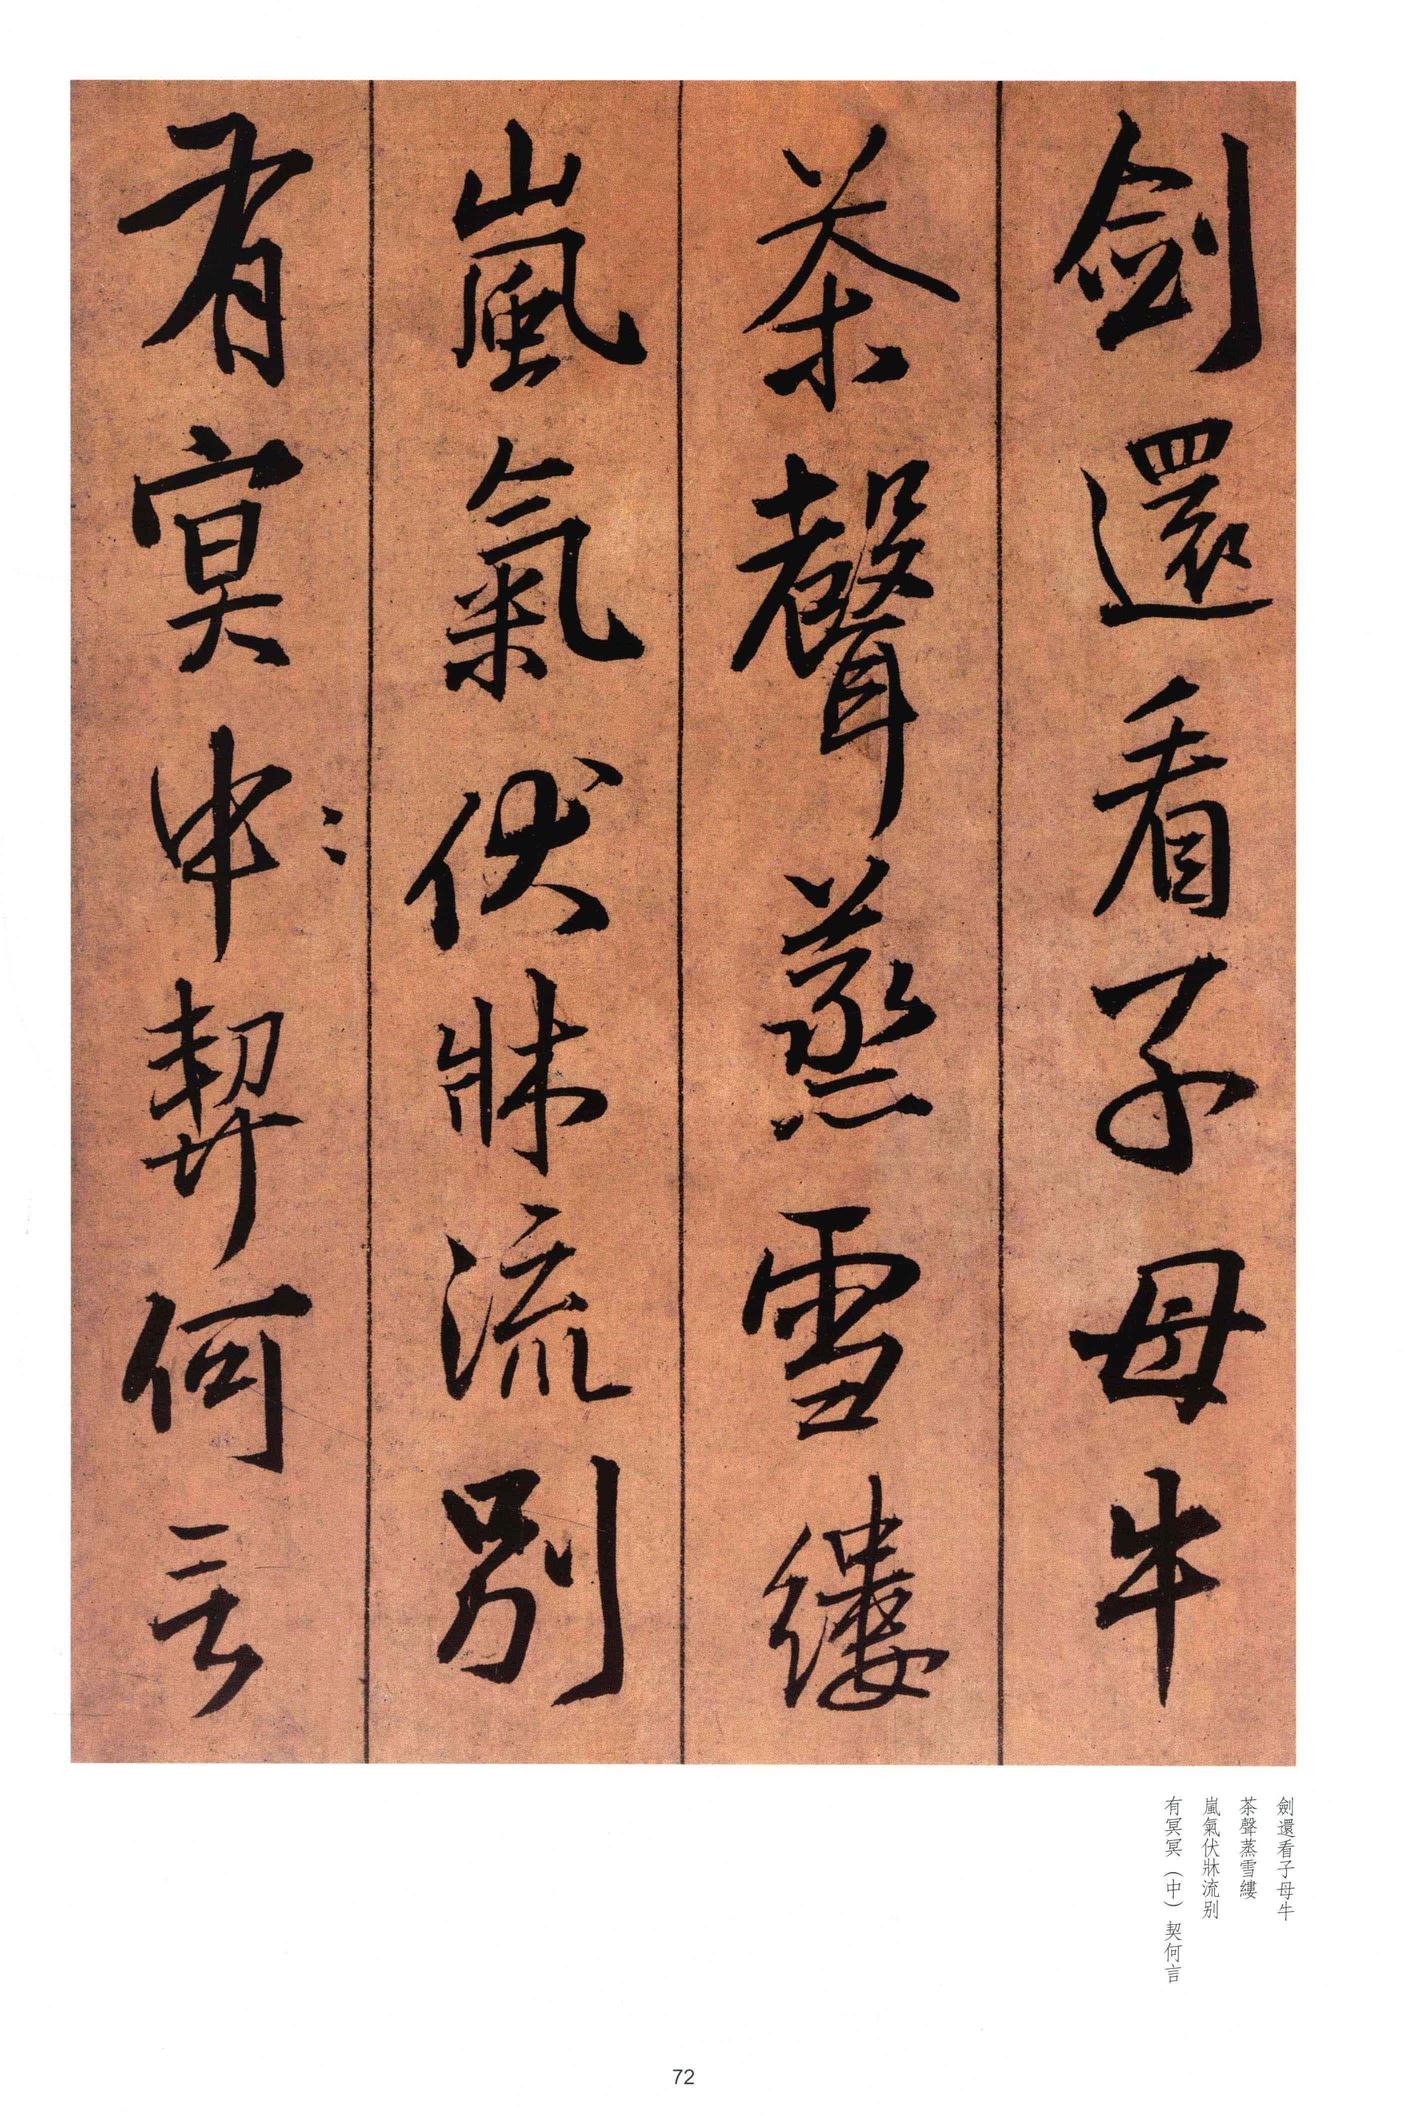 劍還看子母牛
茶聲蒸雪縷
嵐氣伏牀流別
有冥申契何言
劍還看子母牛
茶聲蒸雪縷
嵐氣伏牀流别
有冥冥（中）契何言
72